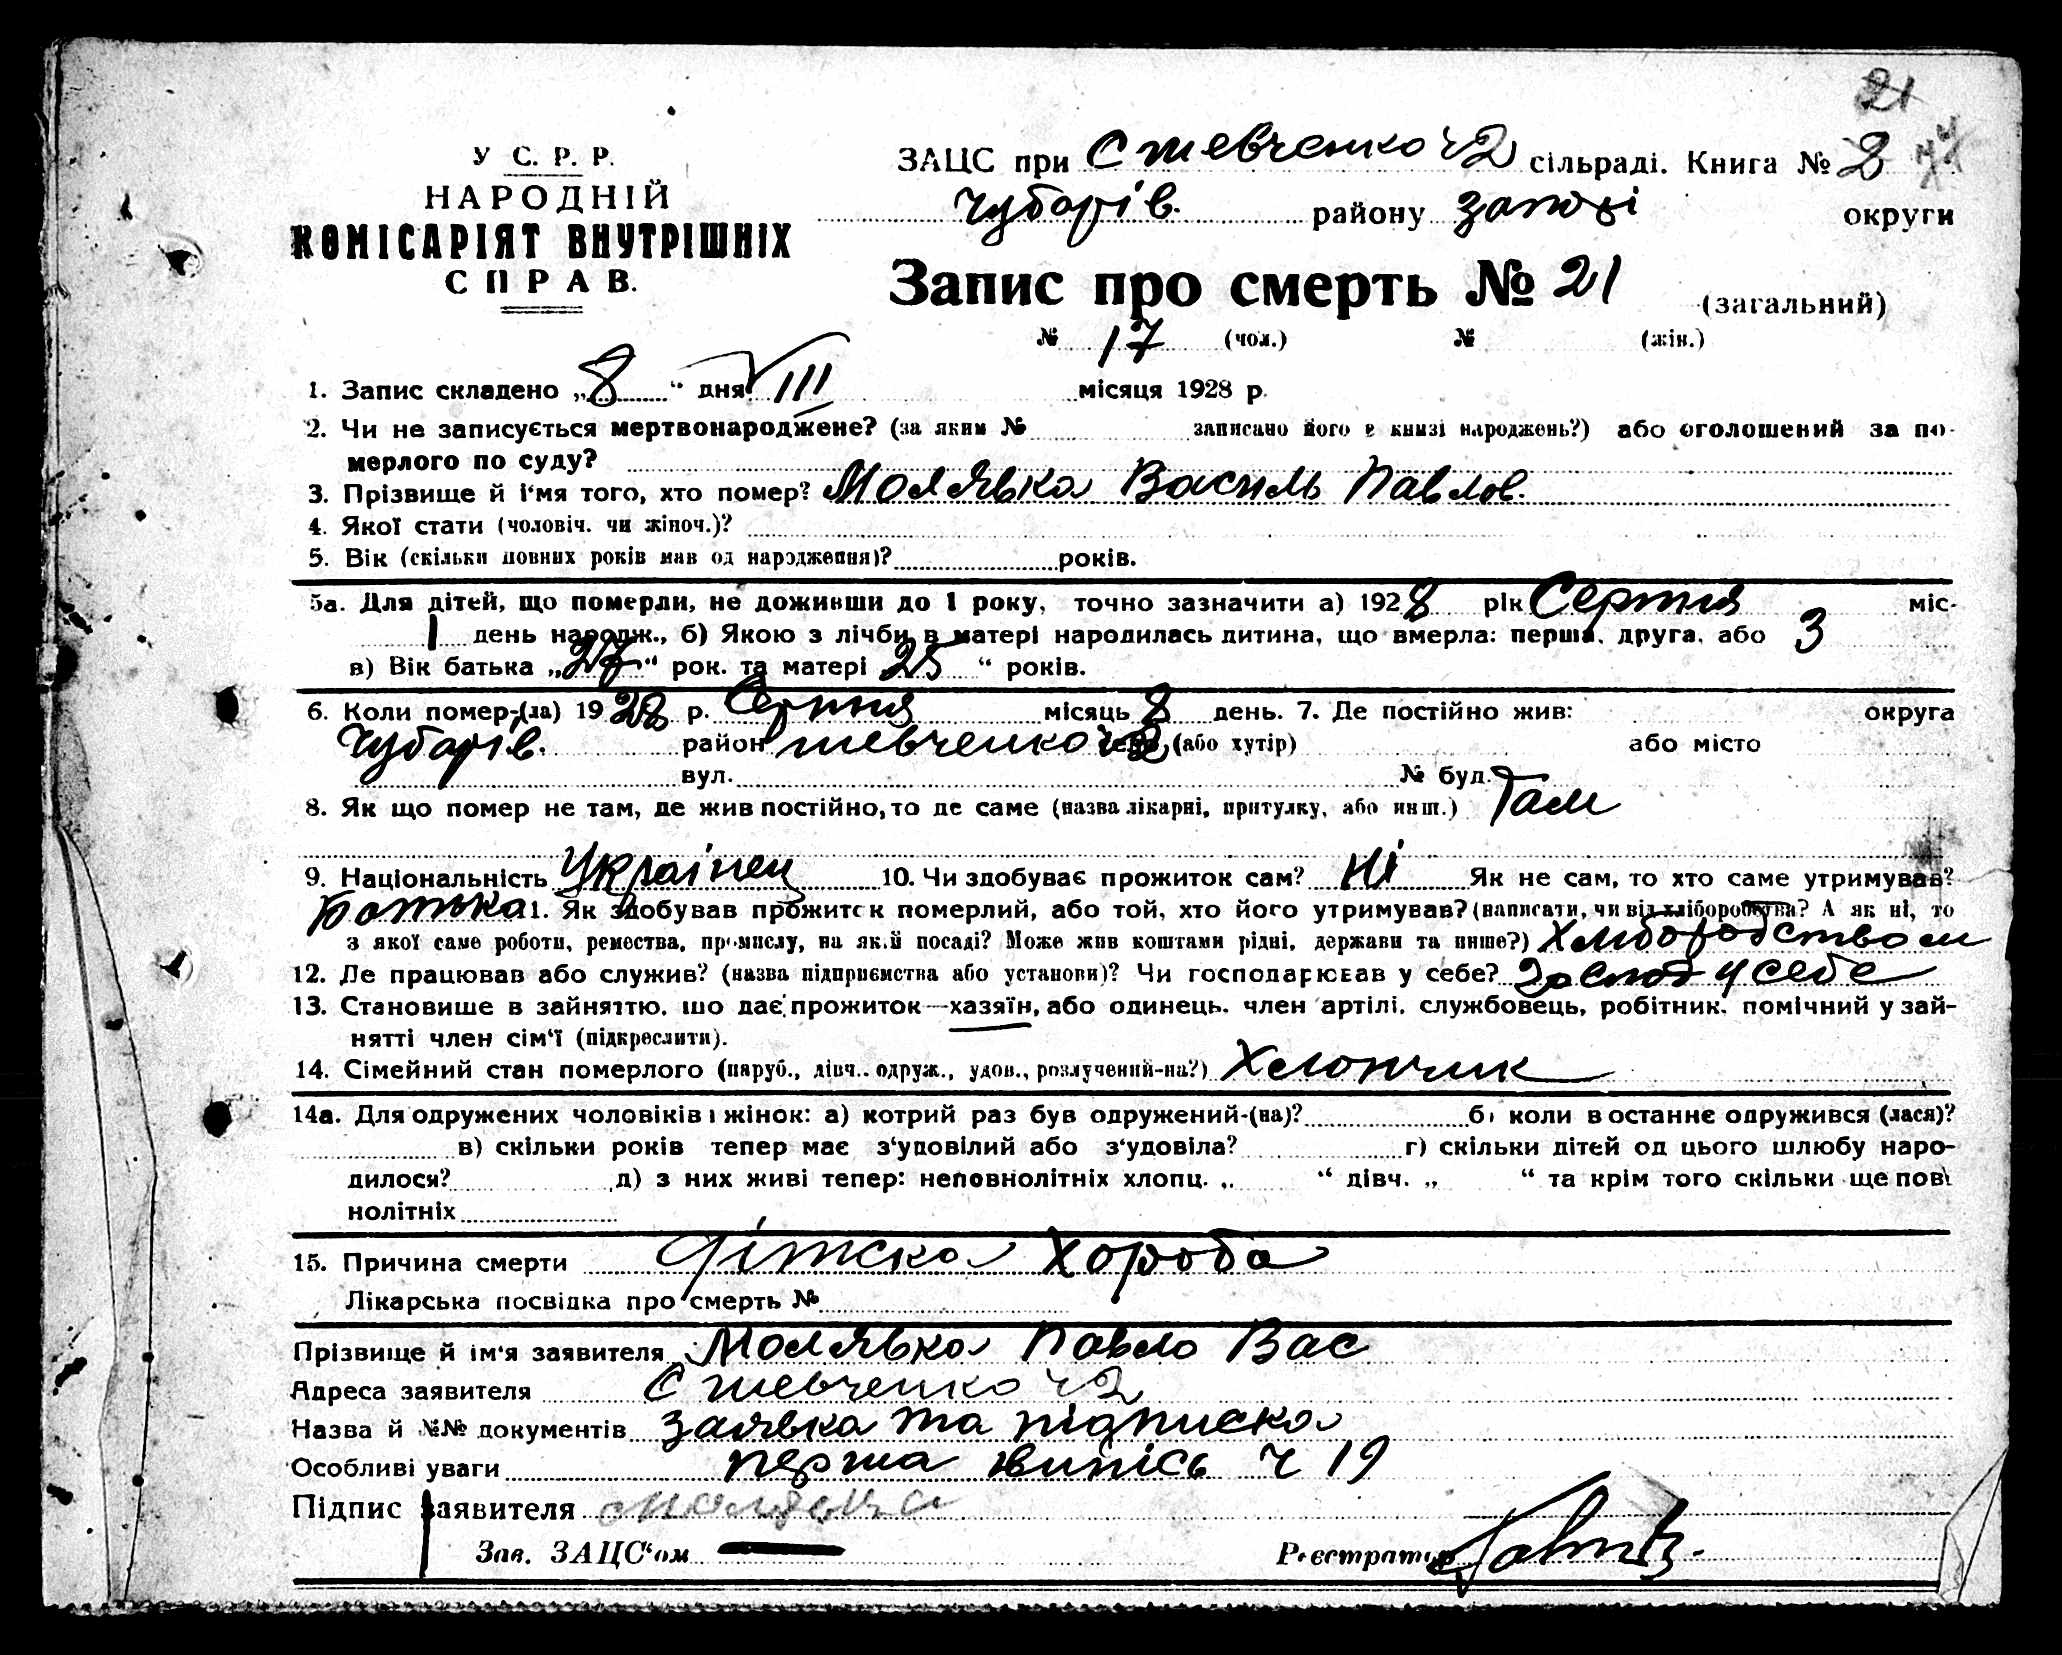 21
У С. Р. Р.
НАРОДНІЙ
КОМІСАРІЯТ ВНУТРІШНІХ
СПРАВ.
ЗАЦС при С Шевченко ч 2 сільраді. Книга № 2
Чубарів. району запоні округи
Запис про смерть № 21 (загальний)
№ 17 (чол.) № (жін.)
1. Запис складено „8“ дня VIII місяця 1928 р.
2. Чи не записується мертвонароджене? (за яким № записано його в книзі народжень?) або оголошений за по-
мерлого по суду?
3. Прізвище й і'мя того, хто помер? Молявка Василь Павлов.
4. Якої стати (чоловіч. чи жіноч.)?
5. Вік (скільки повних років мав од народження)? років.
5а. Для дітей, що померли, не доживши до 1 року, точно зазначити а) 1928 рік Серпня міс-
1 день народж., б) Якою з лічби в матері народилась дитина, що вмерла: перша, друга, або 3
в) Вік батька „27“ рок. та матері 25 “ років.
6. Коли помер-(ла) 1928 р. Серпня місяць 8 день. 7. Де постійно жив: округа
Чубарів. район Шевченко ч 2 село (або хутір) або місто
вул. № буд.
8. Як що помер не там, де жив постійно, то де саме (назва лікарні, притулку, або инш.) Там
9. Національність Українец 10. Чи здобуває прожиток сам? Ні Як не сам, то хто саме утримував?
Батька 11. Як здобував прожиток померлий, або той, хто його утримував? (написати, чи від хліборобства? А як ні, то
з якої саме роботи, ремества, промислу, на якій посаді? Може жив коштами рідні, держави та инше?) Хлібородством
12. Де працював або служив? (назва підприємства або установи)? Чи господарював у себе? Господ у себе
13. Становище в зайняттю, що дає прожиток—хазяїн, або одинець, член артілі, службовець, робітник, помічний у зай-
нятті член сім'ї (підкреслити).
14. Сімейний стан померлого (паруб., дівч., одруж., удов., розлучений-на?) Хлопчик
14а. Для одружених чоловіків і жінок: а) котрий раз був одружений-(на)? б) коли в останнє одружився (лася)?
в) скільки років тепер має з'удовілий або з'удовіла? г) скільки дітей од цього шлюбу наро-
дилося? д) з них живі тепер: неповнолітніх хлопц. „ “ дівч. „ “ та крім того скільки ще пов
нолітніх
15. Причина смерти Дітска Хороба
Лікарська посвідка про смерть №
Прізвище й ім'я заявителя Молявка Павло Вас
Адреса заявителя С Шевченко ч 2
Назва й №№ документів заявка та підписка
Особливі уваги перша випісь ч 19
Підпис заявителя
Зав. ЗАЦС'ом Реєстратор